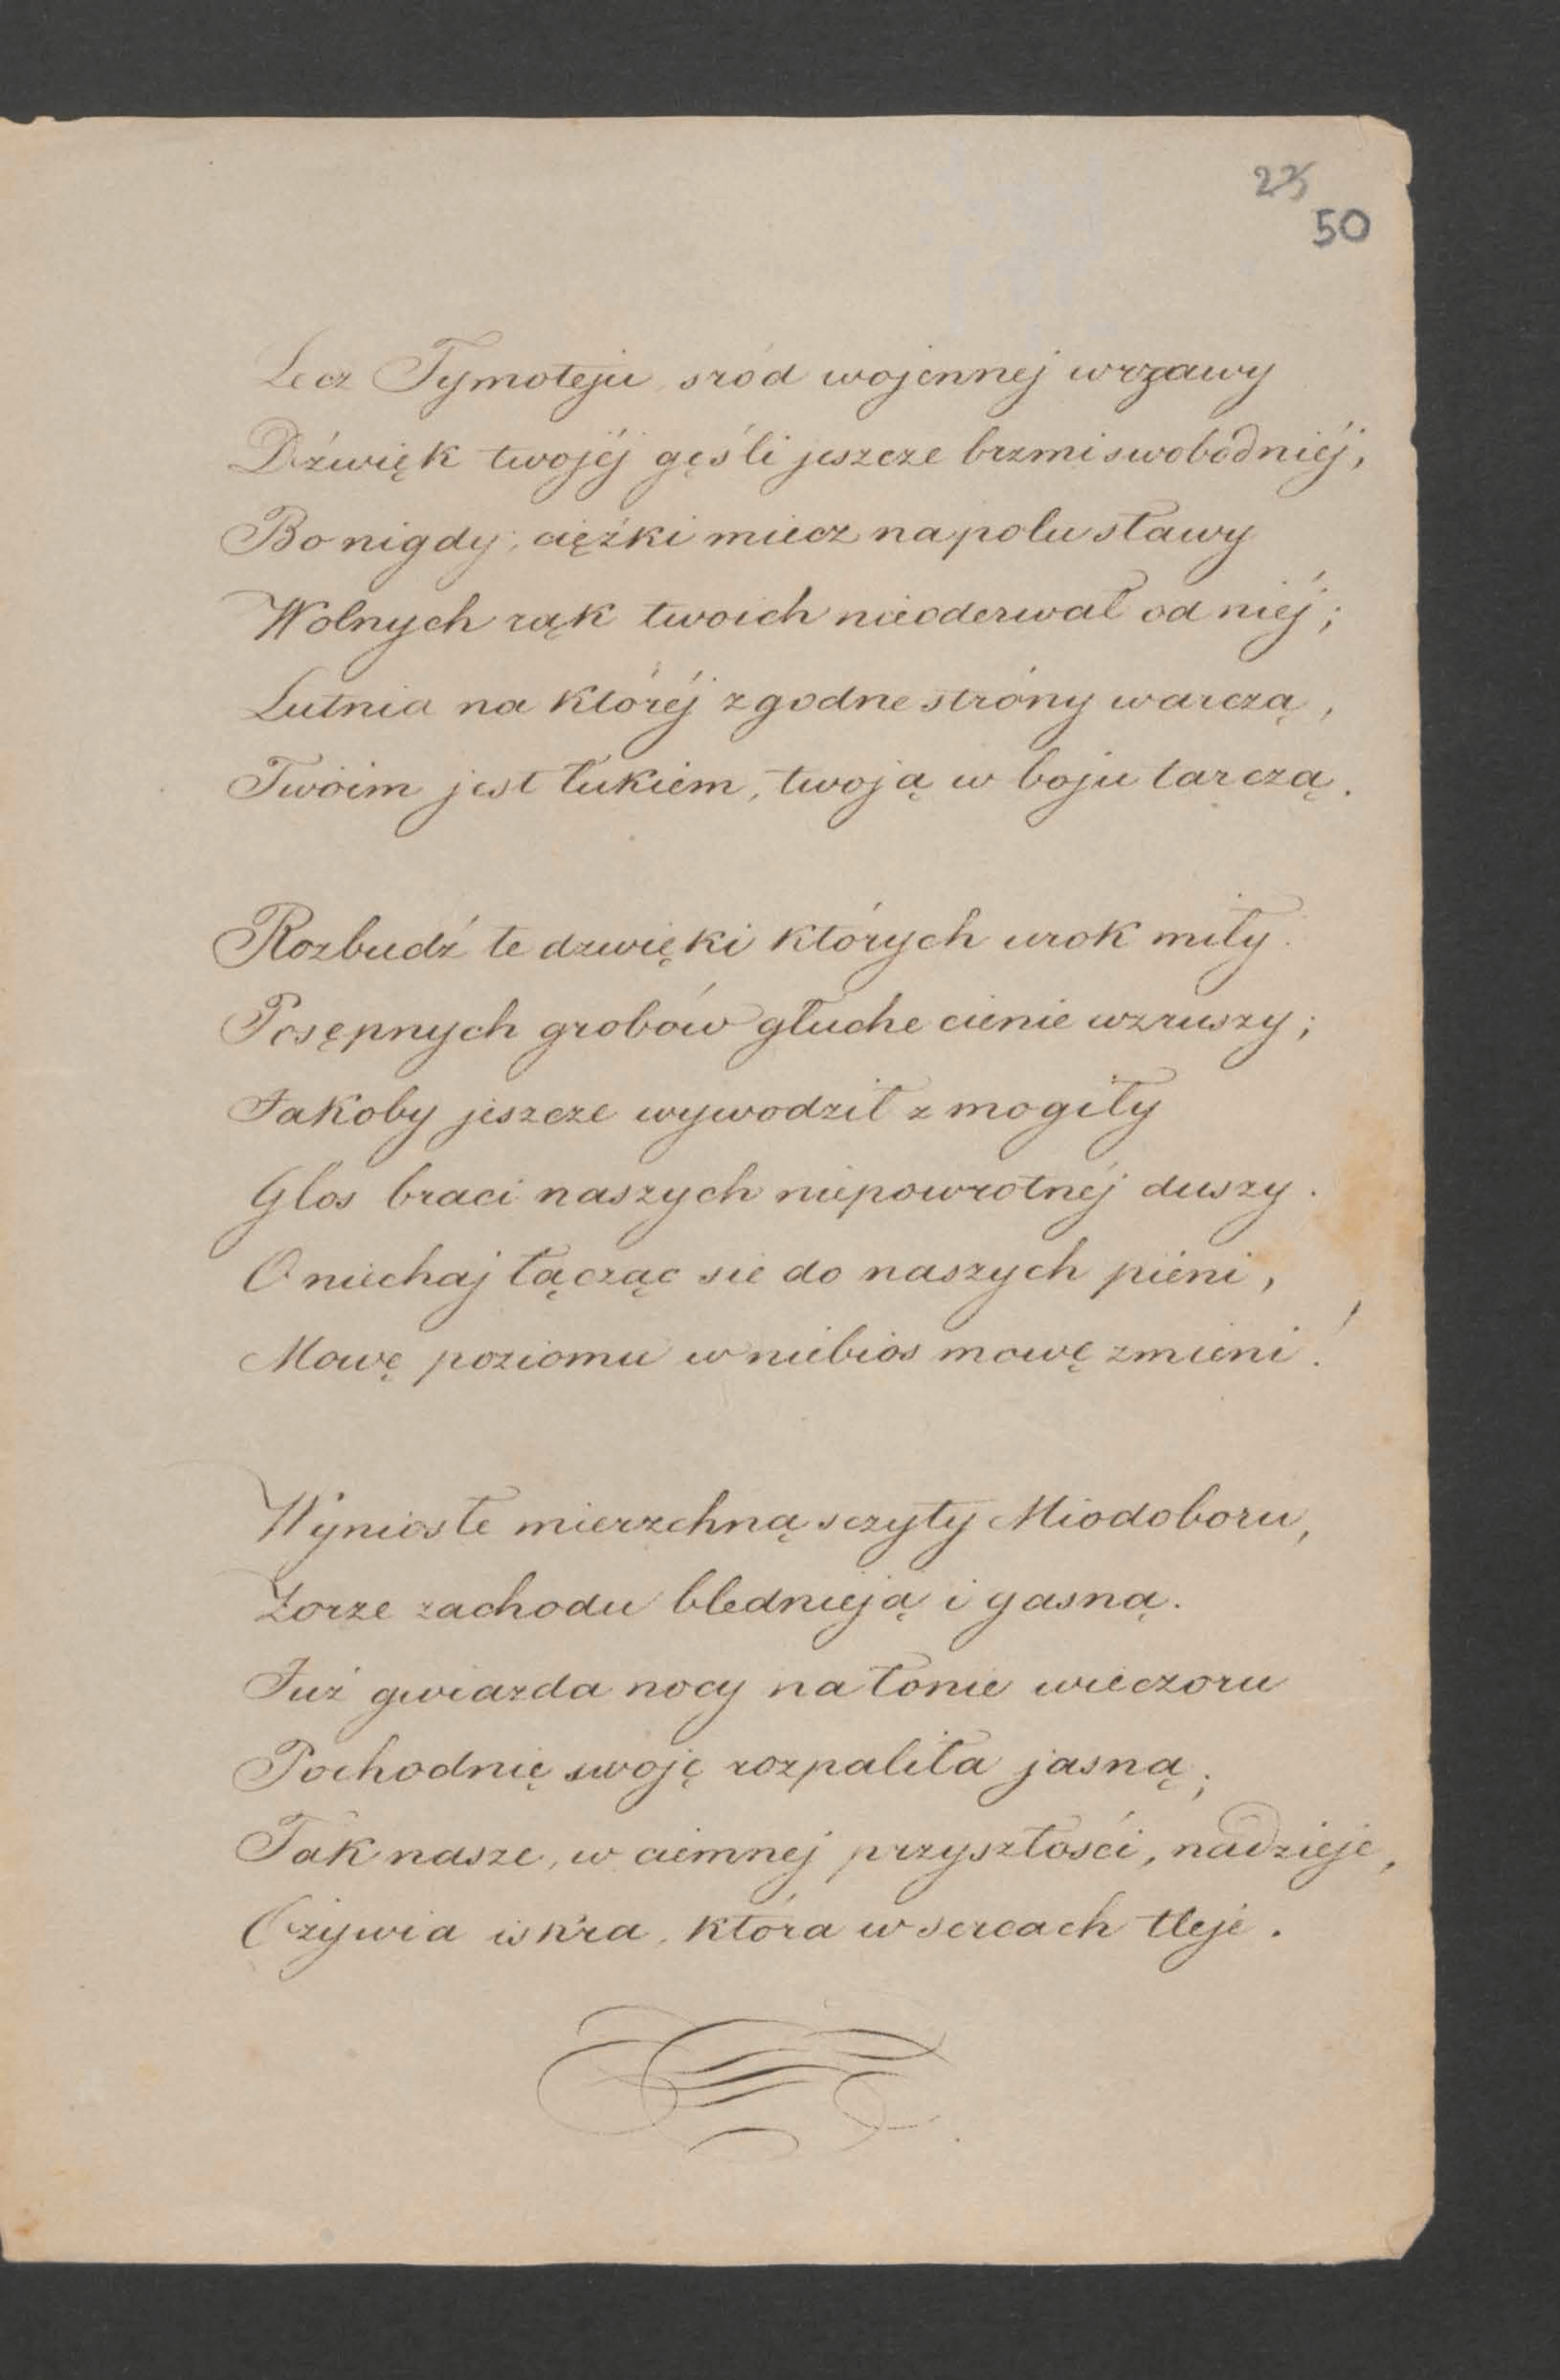 23
50
Lecz Tymoteju, sród wojennej wrzawy
Dźwięk twojéj gęśli jeszcze brzmi swobodniéj,
Bo nigdy, ciężki miecz na polu sławy
Wolnych rąk twoich nieoderwał od niéj;
Lutnia na któréj zgodne stróny warczą,
Twoim jest łukiem, twoją w boju tarczą.
Rozbudź te dzwięki których urok miły
Posępnych grobów głuche cienie wzruszy;
Jakoby jeszcze wywodził z mogiły
Glos braci naszych niepowrotnéj duszy.
O niechaj łącząc sie do naszych pieni,
Mowę poziomu w niebios mowę zmieni!
Wyniosłe mierzchną sczyty Miodoboru,
Zorze zachodu blednieją i gasną.
Już gwiazda nocy na łonie wieczoru
Pochodnię swoję rozpaliła jasną;
Tak nasze, w ciemnej przyszłości, nadzieje,
Ożywia iskra, która w sercach tleje.